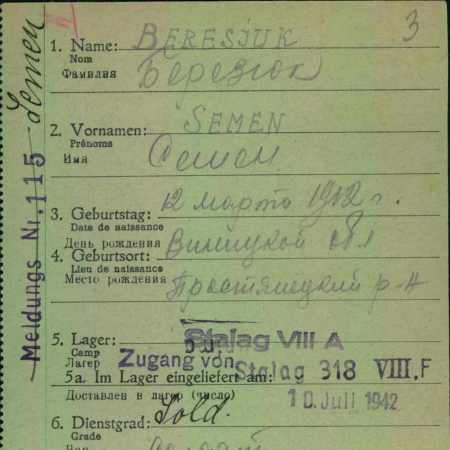 3
1. Name: BERESJUK
Nom
Фамилия Березюк
2. Vornamen: SEMEN
Prénoms
Имя Семен
3. Geburtstag: 12 марта 1912 г.
Date de naissance
День рождения Виницкой обл
4. Geburtsort:
Lieu de naissance
Место рождения р-н
5. Lager: Stalag VIII A
Camp
Лагерь Zugang von Stalag 318 VIII.F
5a. Im Lager eingeliefert am:
Доставлен в лагерь (число) 10. Juli 1942
6. Dienstgrad: Sold.
Grade
Чин солдат
Meldungs Nr. 115
Semen